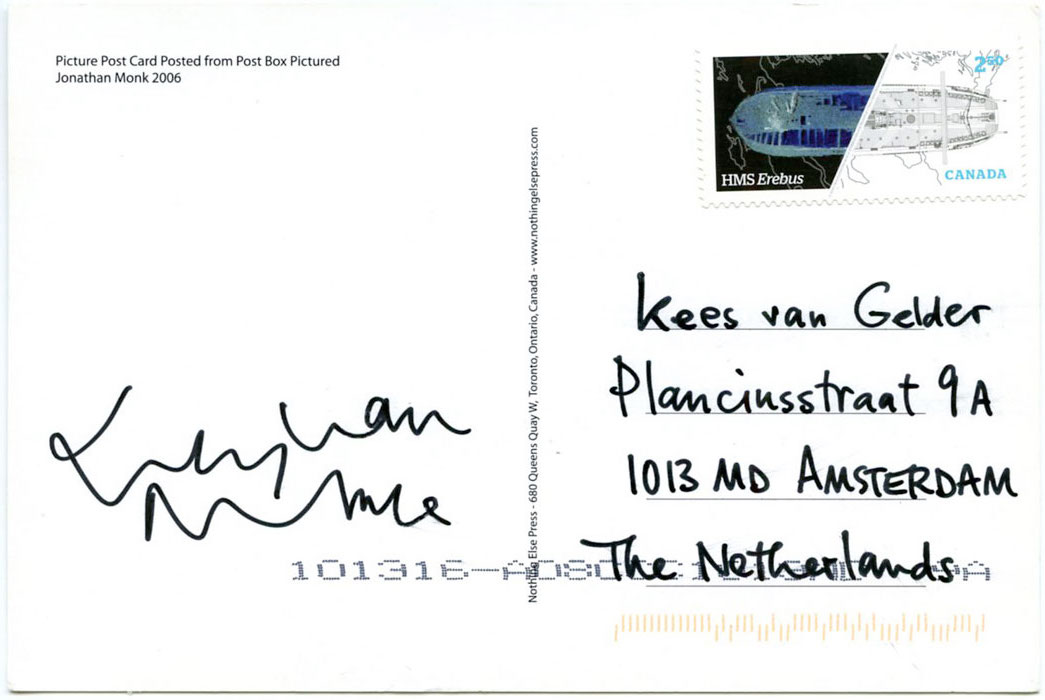 Picture Post Card Posted from Post Box Pictured
Jonathan Monk 2006
2.50
HMS Erebus
CANADA
Nothing Else Press - 680 Queens Quay W, Toronto, Ontario, Canada - www.nothingelsepress.com
Kees van Gelder
Planciusstraat 9A
1013 MD AMSTERDAM
The Netherlands
101316-A08